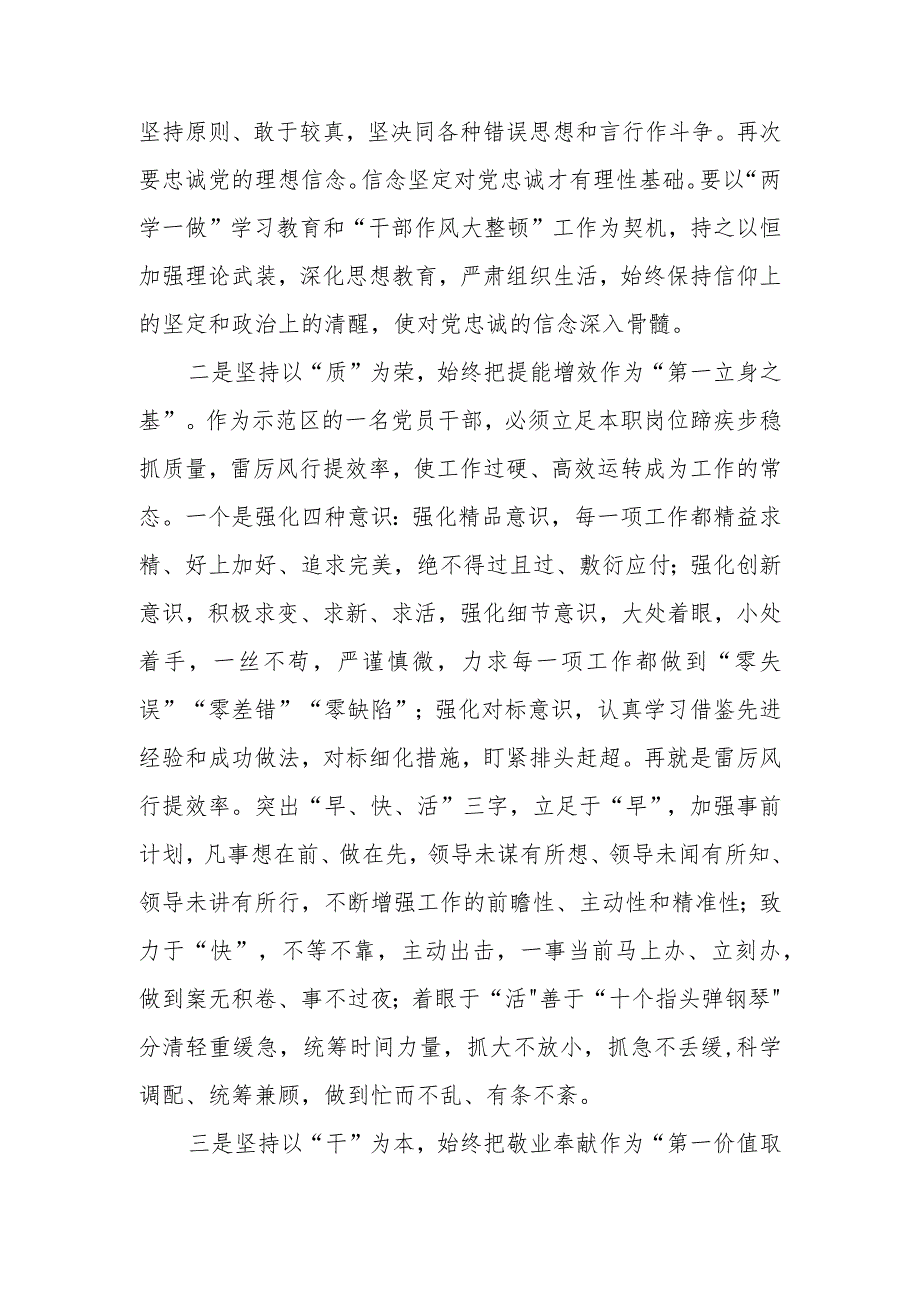 坚持原则、敢于较真，坚决同各种错误思想和言行作斗争。再次
要忠诚党的理想信念。信念坚定对党忠诚才有理性基础。要以“两
学一做”学习教育和“干部作风大整顿”工作为契机，持之以恒
加强理论武装，深化思想教育，严肃组织生活，始终保持信仰上
的坚定和政治上的清醒，使对党忠诚的信念深入骨髓。
二是坚持以“质”为荣，始终把提能增效作为“第一立身之
基”。作为示范区的一名党员干部，必须立足本职岗位蹄疾步稳
抓质量，雷厉风行提效率，使工作过硬、高效运转成为工作的常
态。一个是强化四种意识：强化精品意识，每一项工作都精益求
精、好上加好、追求完美，绝不得过且过、敷衍应付；强化创新
意识，积极求变、求新、求活，强化细节意识，大处着眼，小处
着手，一丝不苟，严谨慎微，力求每一项工作都做到“零失
误”“零差错”“零缺陷”；强化对标意识，认真学习借鉴先进
经验和成功做法，对标细化措施，盯紧排头赶超。再就是雷厉风
行提效率。突出“早、快、活”三字，立足于“早”，加强事前
计划，凡事想在前、做在先，领导未谋有所想、领导未闻有所知、
领导未讲有所行，不断增强工作的前瞻性、主动性和精准性；致
力于“快”，不等不靠，主动出击，一事当前马上办、立刻办，
做到案无积卷、事不过夜；着眼于“活"善于“十个指头弹钢琴"
分清轻重缓急，统筹时间力量，抓大不放小，抓急不丢缓,科学
调配、统筹兼顾，做到忙而不乱、有条不紊。
三是坚持以“干”为本，始终把敬业奉献作为“第一价值取